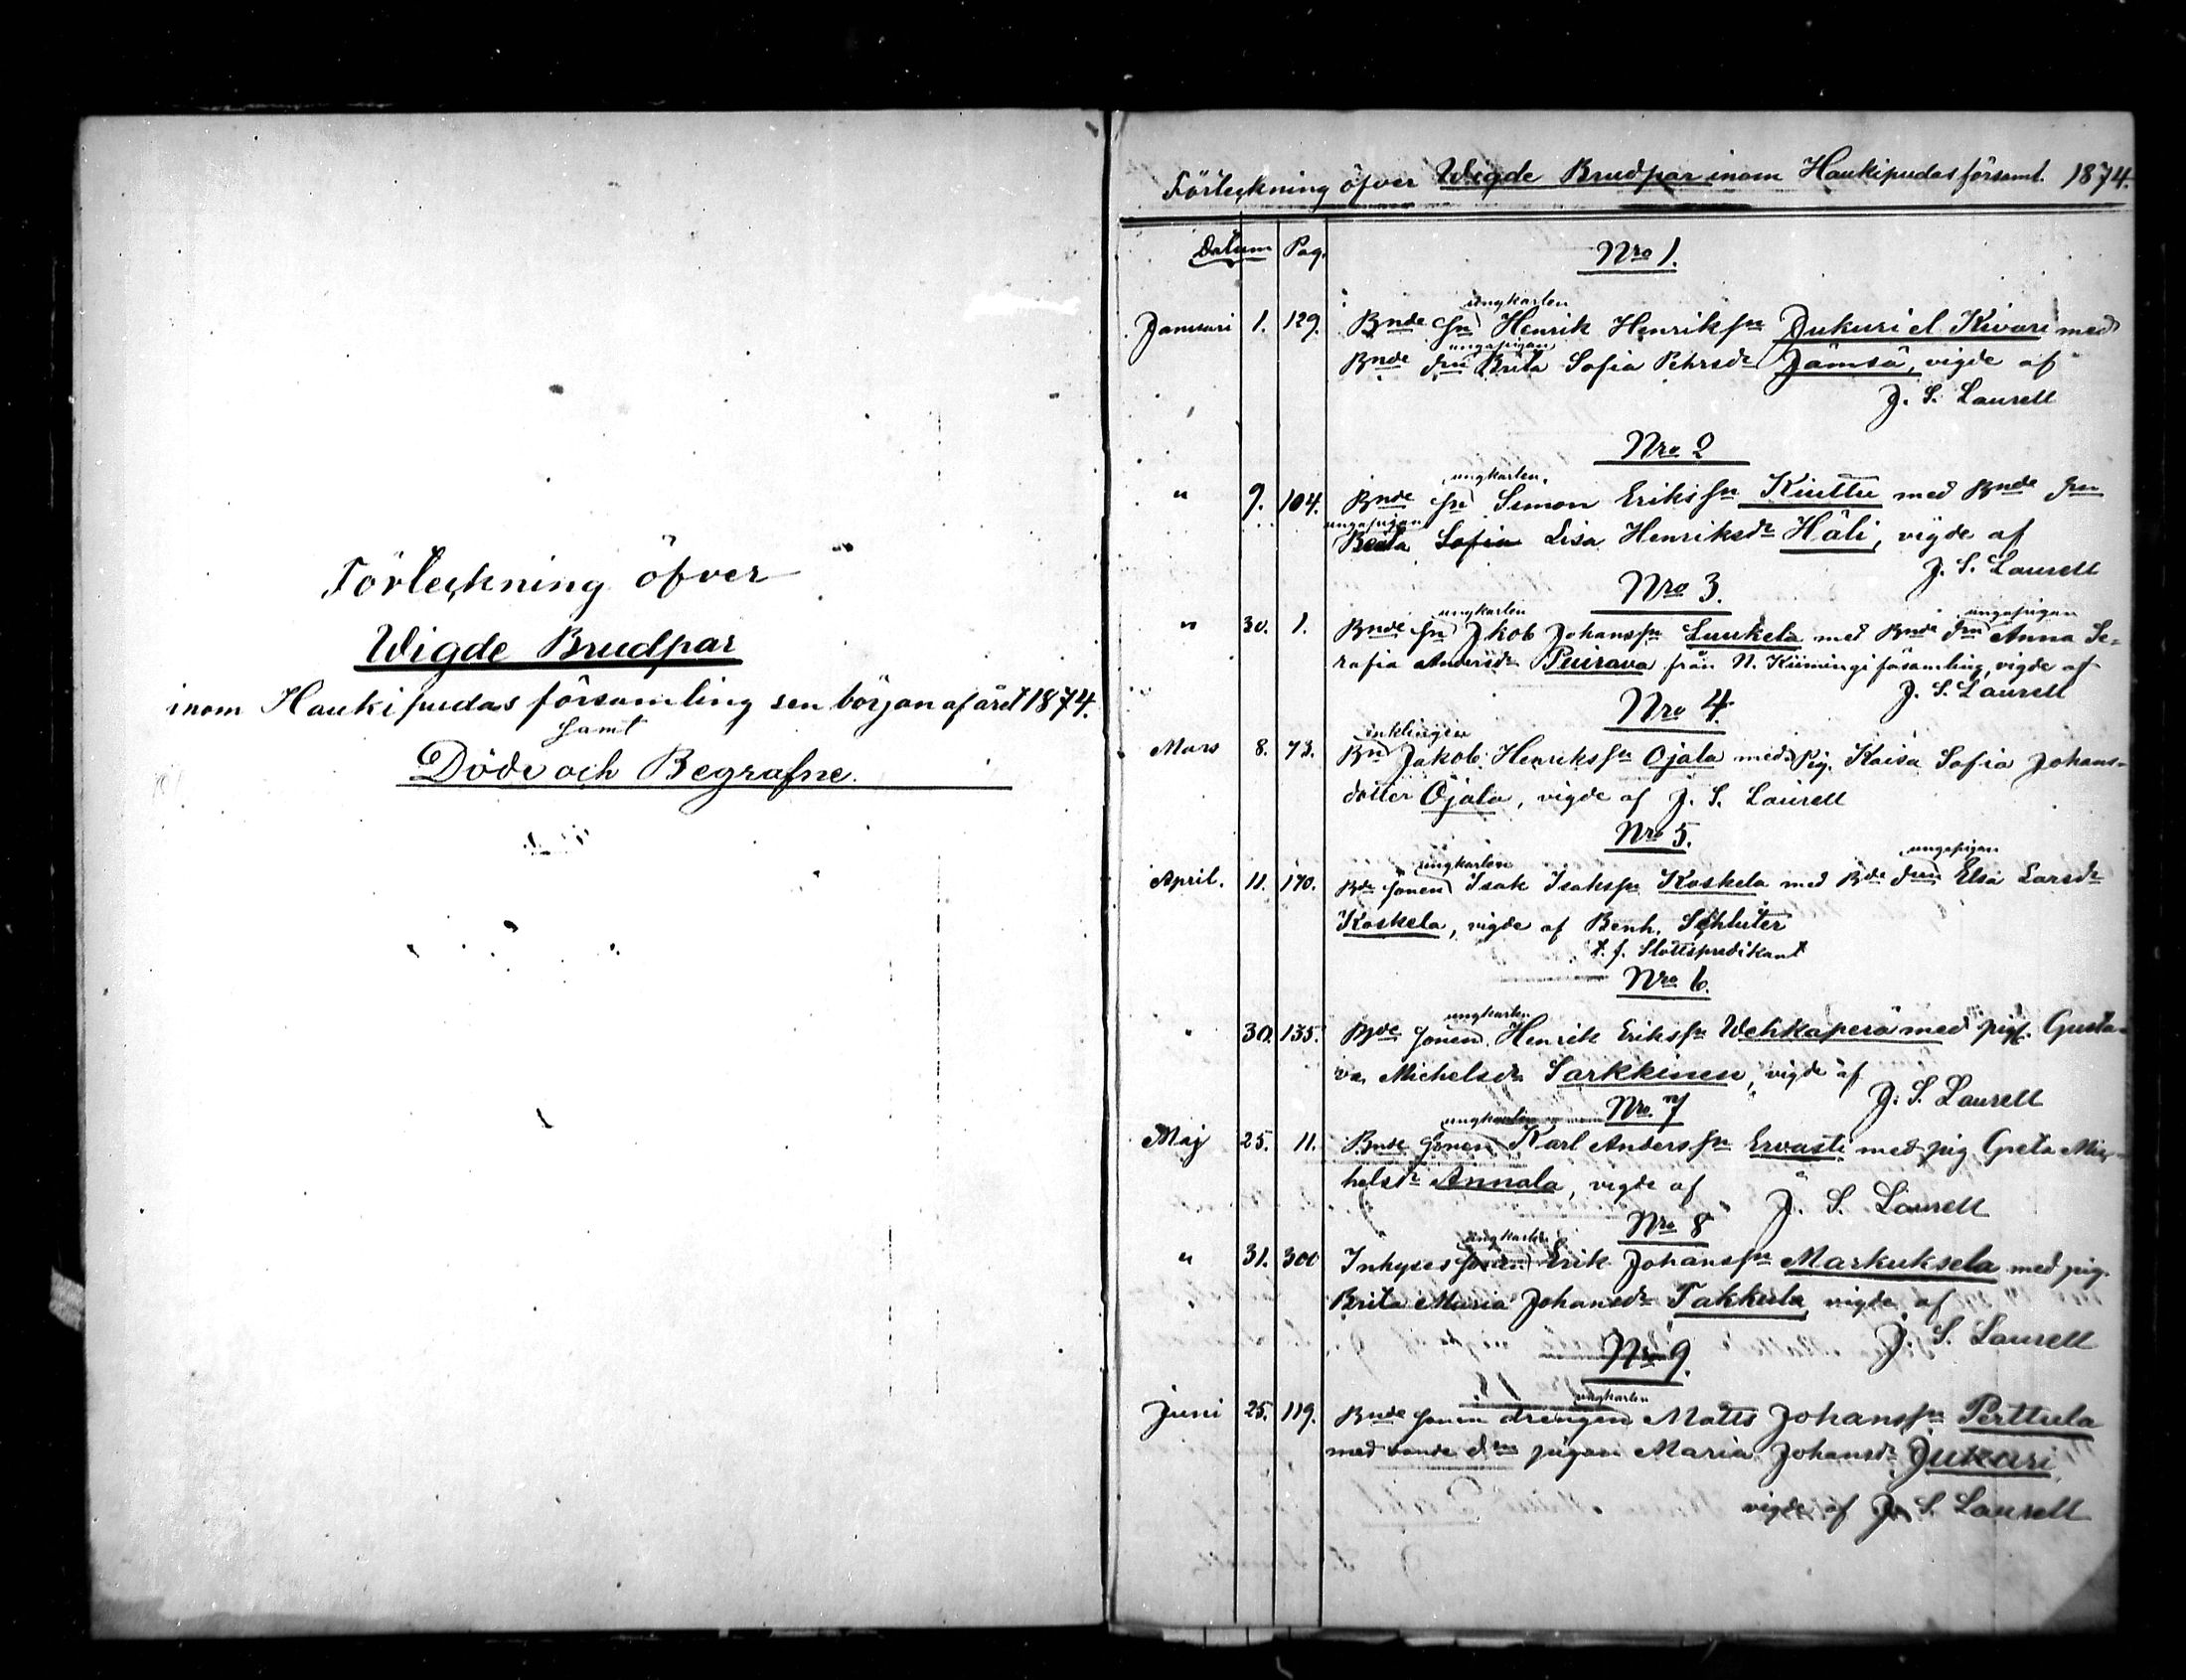 Förteckning öfver
Wigde Brudpar
inom Haukipudas församling sen början af året 1874.
samt
Döde och Begrafne.
Förteckning öfver Wigde Brudpar inom Haukipudas församl. 1874.
Datum Pag. Nro 1.
ungkarlen
Januari 1. 129. Bnde sn Henrik Henrikssn Jukuri el Kivari med
ungapigan
Bnde dru Brita Sofia Pehrsdr Jämsä, vigde af
J. S. Laurell
Nro 2
ungkarlen
" 9. 104. Bnde sn Simon Erikssn Kiuttu med Bnde dru
ungapigan
Beata Sofia Lisa Henriksdr Häli, vigde af
J. S. Laurell
Nro 3.
ungkarlen ungapigan
" 30. 1. Bnde sn Jkob Johanssn Luukela med Bnde dru Anna Se-
rafia Andersdr Puirava från N. Kiimingi församling, vigde af
J. S. Laurell
Nro 4.
enklingen
Mars 8. 73. Bn Jakob Henrikssn Ojala med pig. Kaisa Sofia Johans-
dotter Ojala, vigde af J. S. Laurell
Nro 5.
ungkarlen ungapigan
April. 11. 170. Bde sonen Isak Isakssn Koskela med Bde dru Elsa Larsdr
Koskela, vigde af Benh. Schluter
t. f. Slottspredikant
Nro 6.
ungkarlen
" 30. 135. Bde sonen Henrik Erikssn Wehkaperä med pig. Gusta-
va Michelsdr Sarkkinen, vigde af
J. S. Laurell
Nro. 7
ungkarlen
Maj 25. 11. Bnde sonen Karl Anderssn Ervasti med pig Greta Mic-
helsdr Annala, vigde af
J. S. Laurell
Nro 8
ungkarlen
" 31. 300 Inhyses sonen Erik Johanssn Markuksela med pig.
" Brita Maria Johansdr Takkula, vigde af
J. S. Laurell
Nro 9.
ungkarlen
Juni 25. 119. Bnde sonen drengen Matts Johanssn Perttula
med bonde drn pigan Maria Johansdr Jukuri,
vigde af J. S. Laurell